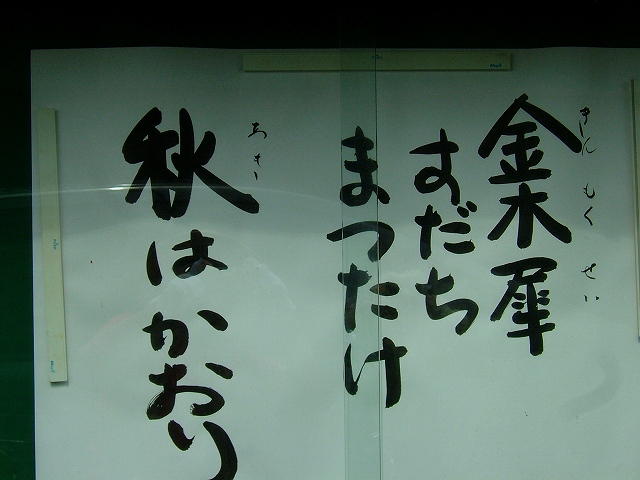 金木犀
きんもくせい
すだち
まつたけ
秋はかおり
あき